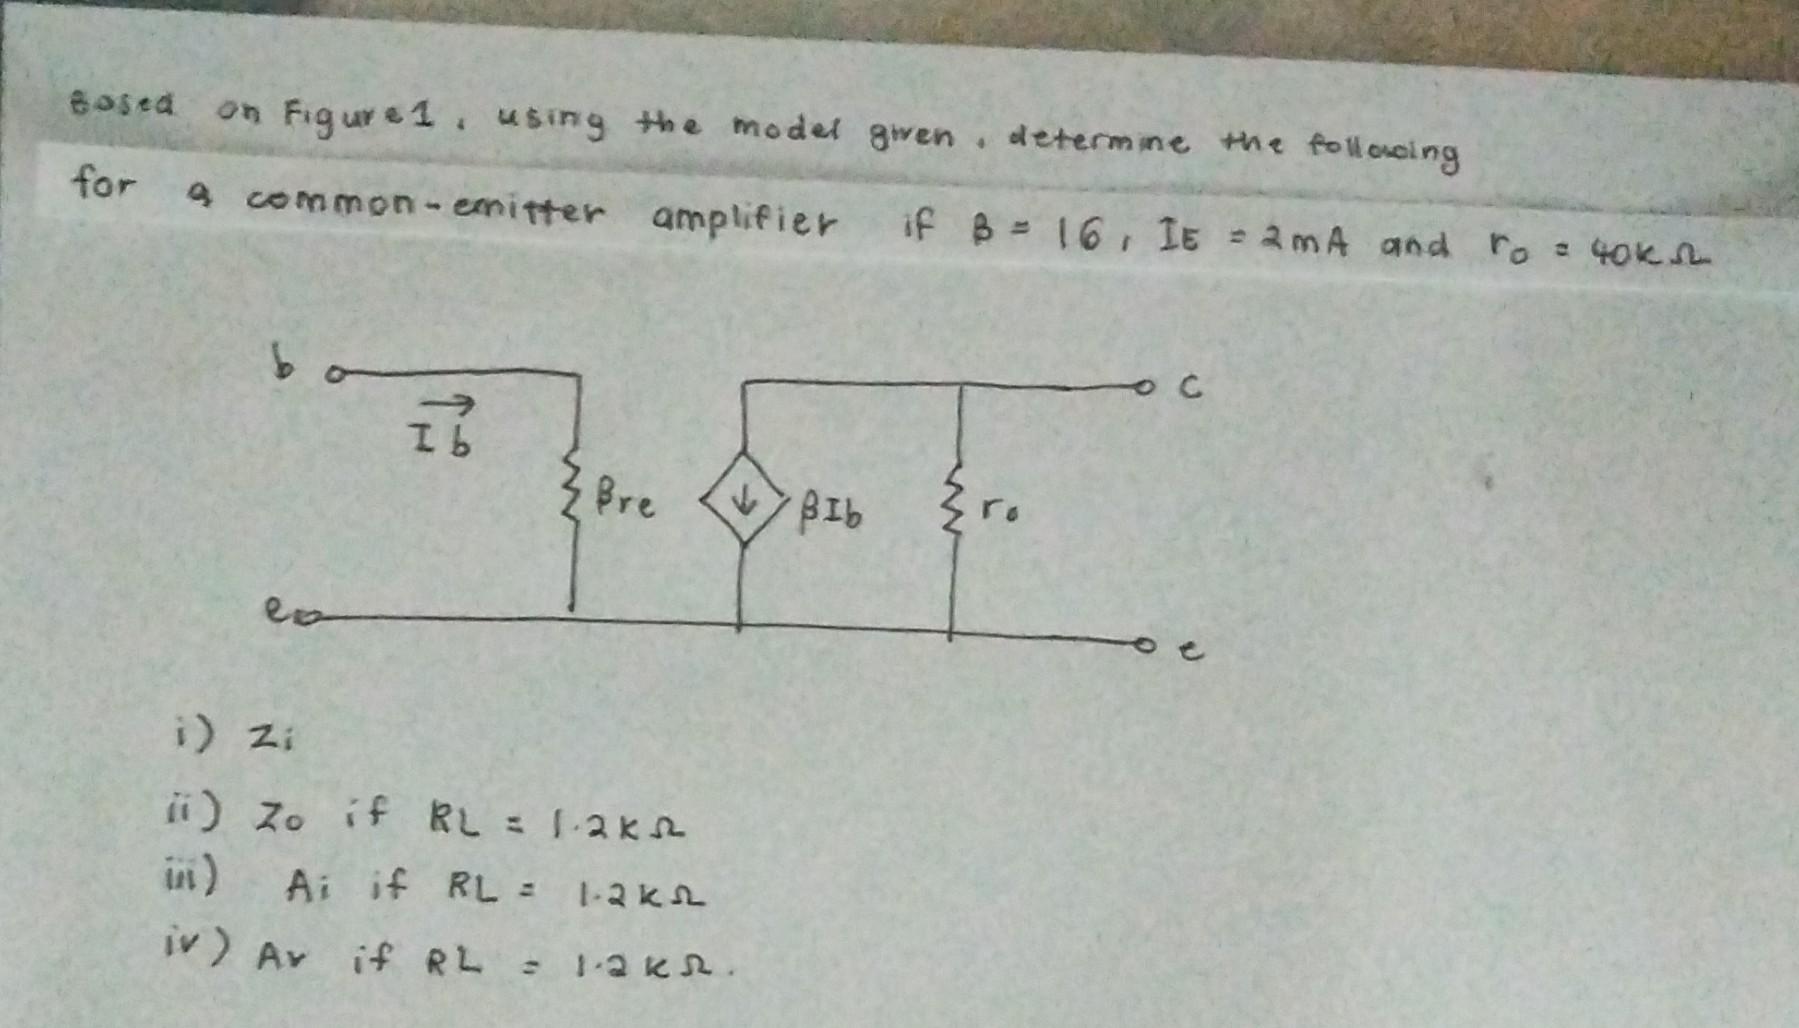 Based on Figure 1, using the model given, determine the following
for a common-emitter amplifier if β = 16, IE = 2mA and ro = 40kΩ
b
c
Ib
βre
βIb
ro
e
e
i) Zi
ii) Zo if RL = 1.2kΩ
iii) Ai if RL = 1.2kΩ
iv) Av if RL = 1.2kΩ.